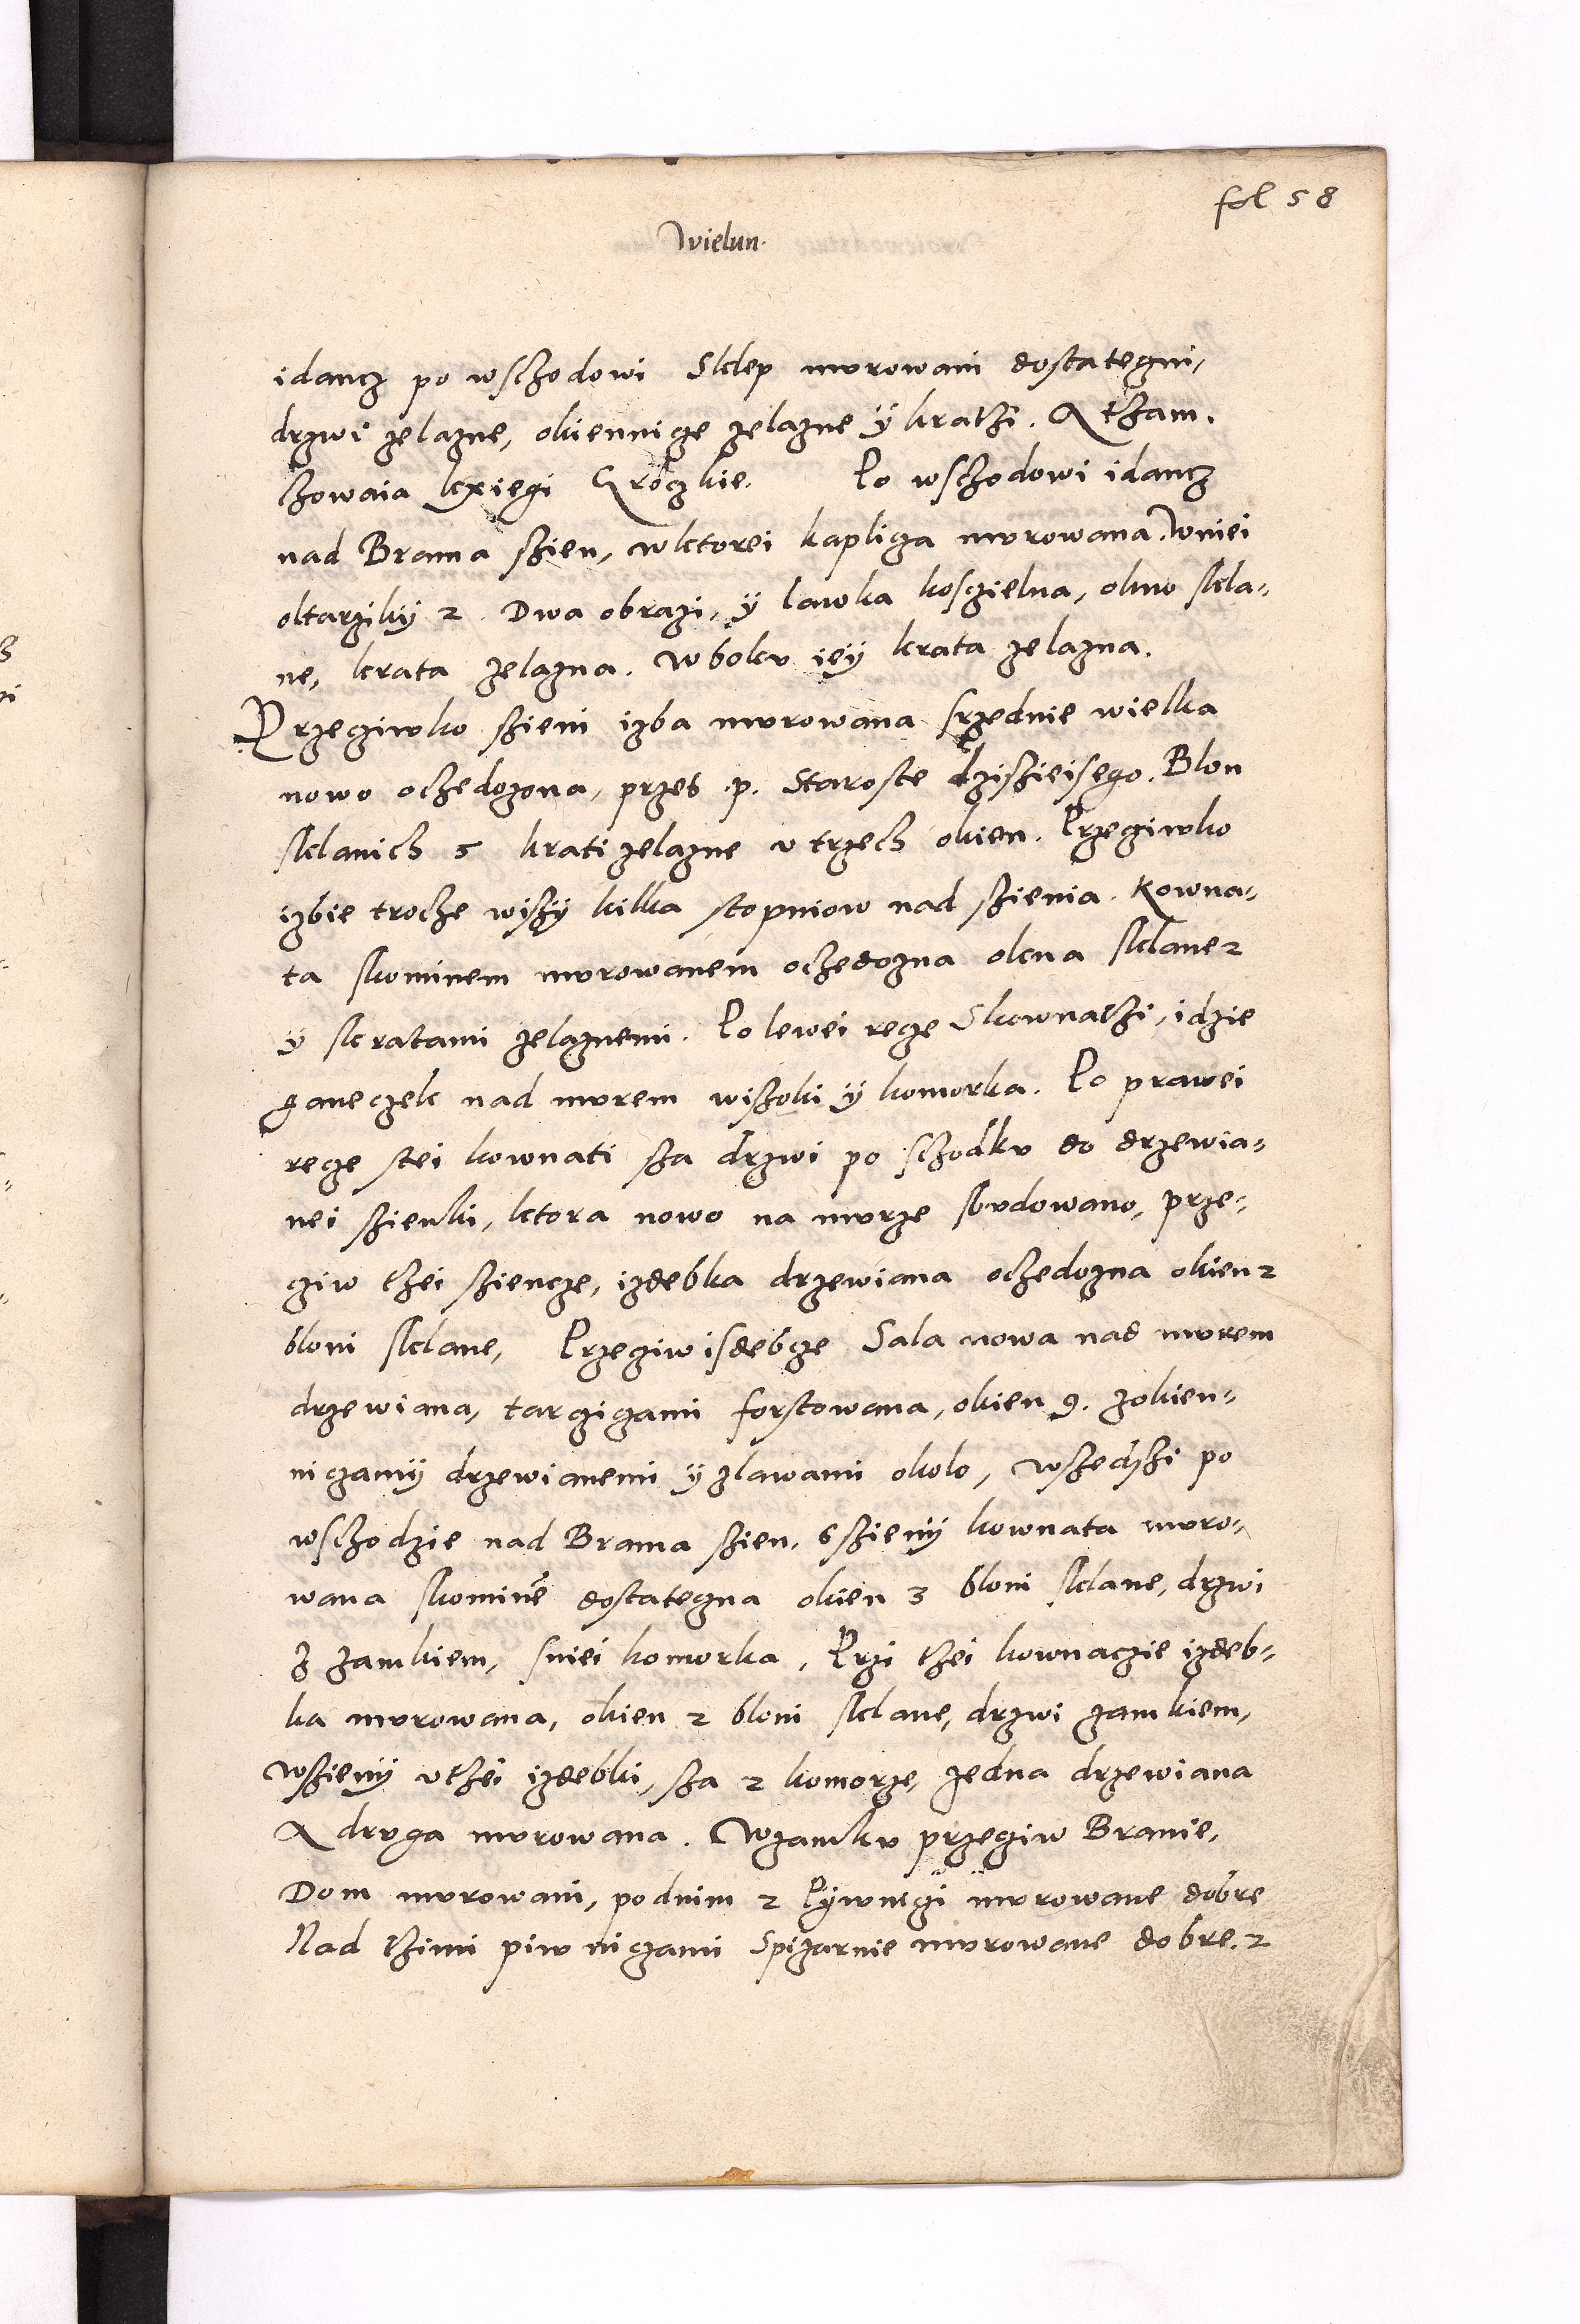 fol 58
Wielun.
idancz po wschodowi Sklep murowani dostateczni,
drzwi zelazne, okiennicze zelazne ÿ kratki. A tham.
chowaia kxiegi Groczkie. Po wschodowi idancz
nad Brama szien, wktorei kaplicza murowana. Wniei
oltarziky 2. Dwa obrazi, ÿ lawka kosczielna, okno skla-
ne, krata zelazna. W bokv ieÿ krata zelazna.
Przecziwko szieni izba murowana srzednie wielka
nowo ochedozona, przes .p. Staroste dziszieisego. Blon
sklanich 5 krati zelazne v trzech okien. Przecziwko
izbie troche wiszÿ kilka stopniow nad szienia. Kowna-
ta skominem murowanem ochedozna okna sklane 2
ÿ skratami zelaznemi. Po lewei recze Skownathi, idzie
ganeczek nad murem wisoki ÿ komorka. Po prawei
recze stei kownati sza drzwi po schodkv do drzewia-
nei szienki, ktora nowo na murze sbvdowano, prze-
cziw thei sziencze, izdebka drzewiana ochedozna okien 2
bloni sklane, Przecziw isdebcze Sala nowa nad murem
drzewiana, tarcziczami forstowana, okien 9. zokien-
niczamÿ drzewianemi ÿ zlawami okolo, wszedszi po
wschodzie nad Brama szien, s szienÿ kownata muro-
wana skominē dostateczna okien 3 bloni sklane, drzwi
z zamkiem, sniei komorka, Przi thei kownaczie izdeb-
ka murowana, okien 2 bloni sklane, drzwi zamkiem,
wszienÿ vthei izdebki, sza 2 komorze, jedna drzewiana
A drvga murowana. Wzamkv przecziw Bramie,
Dom murowani, podnim 2 Pÿwniczi murowane dobre
Nad thimi piwniczami Spizarnie murowane dobre. 2